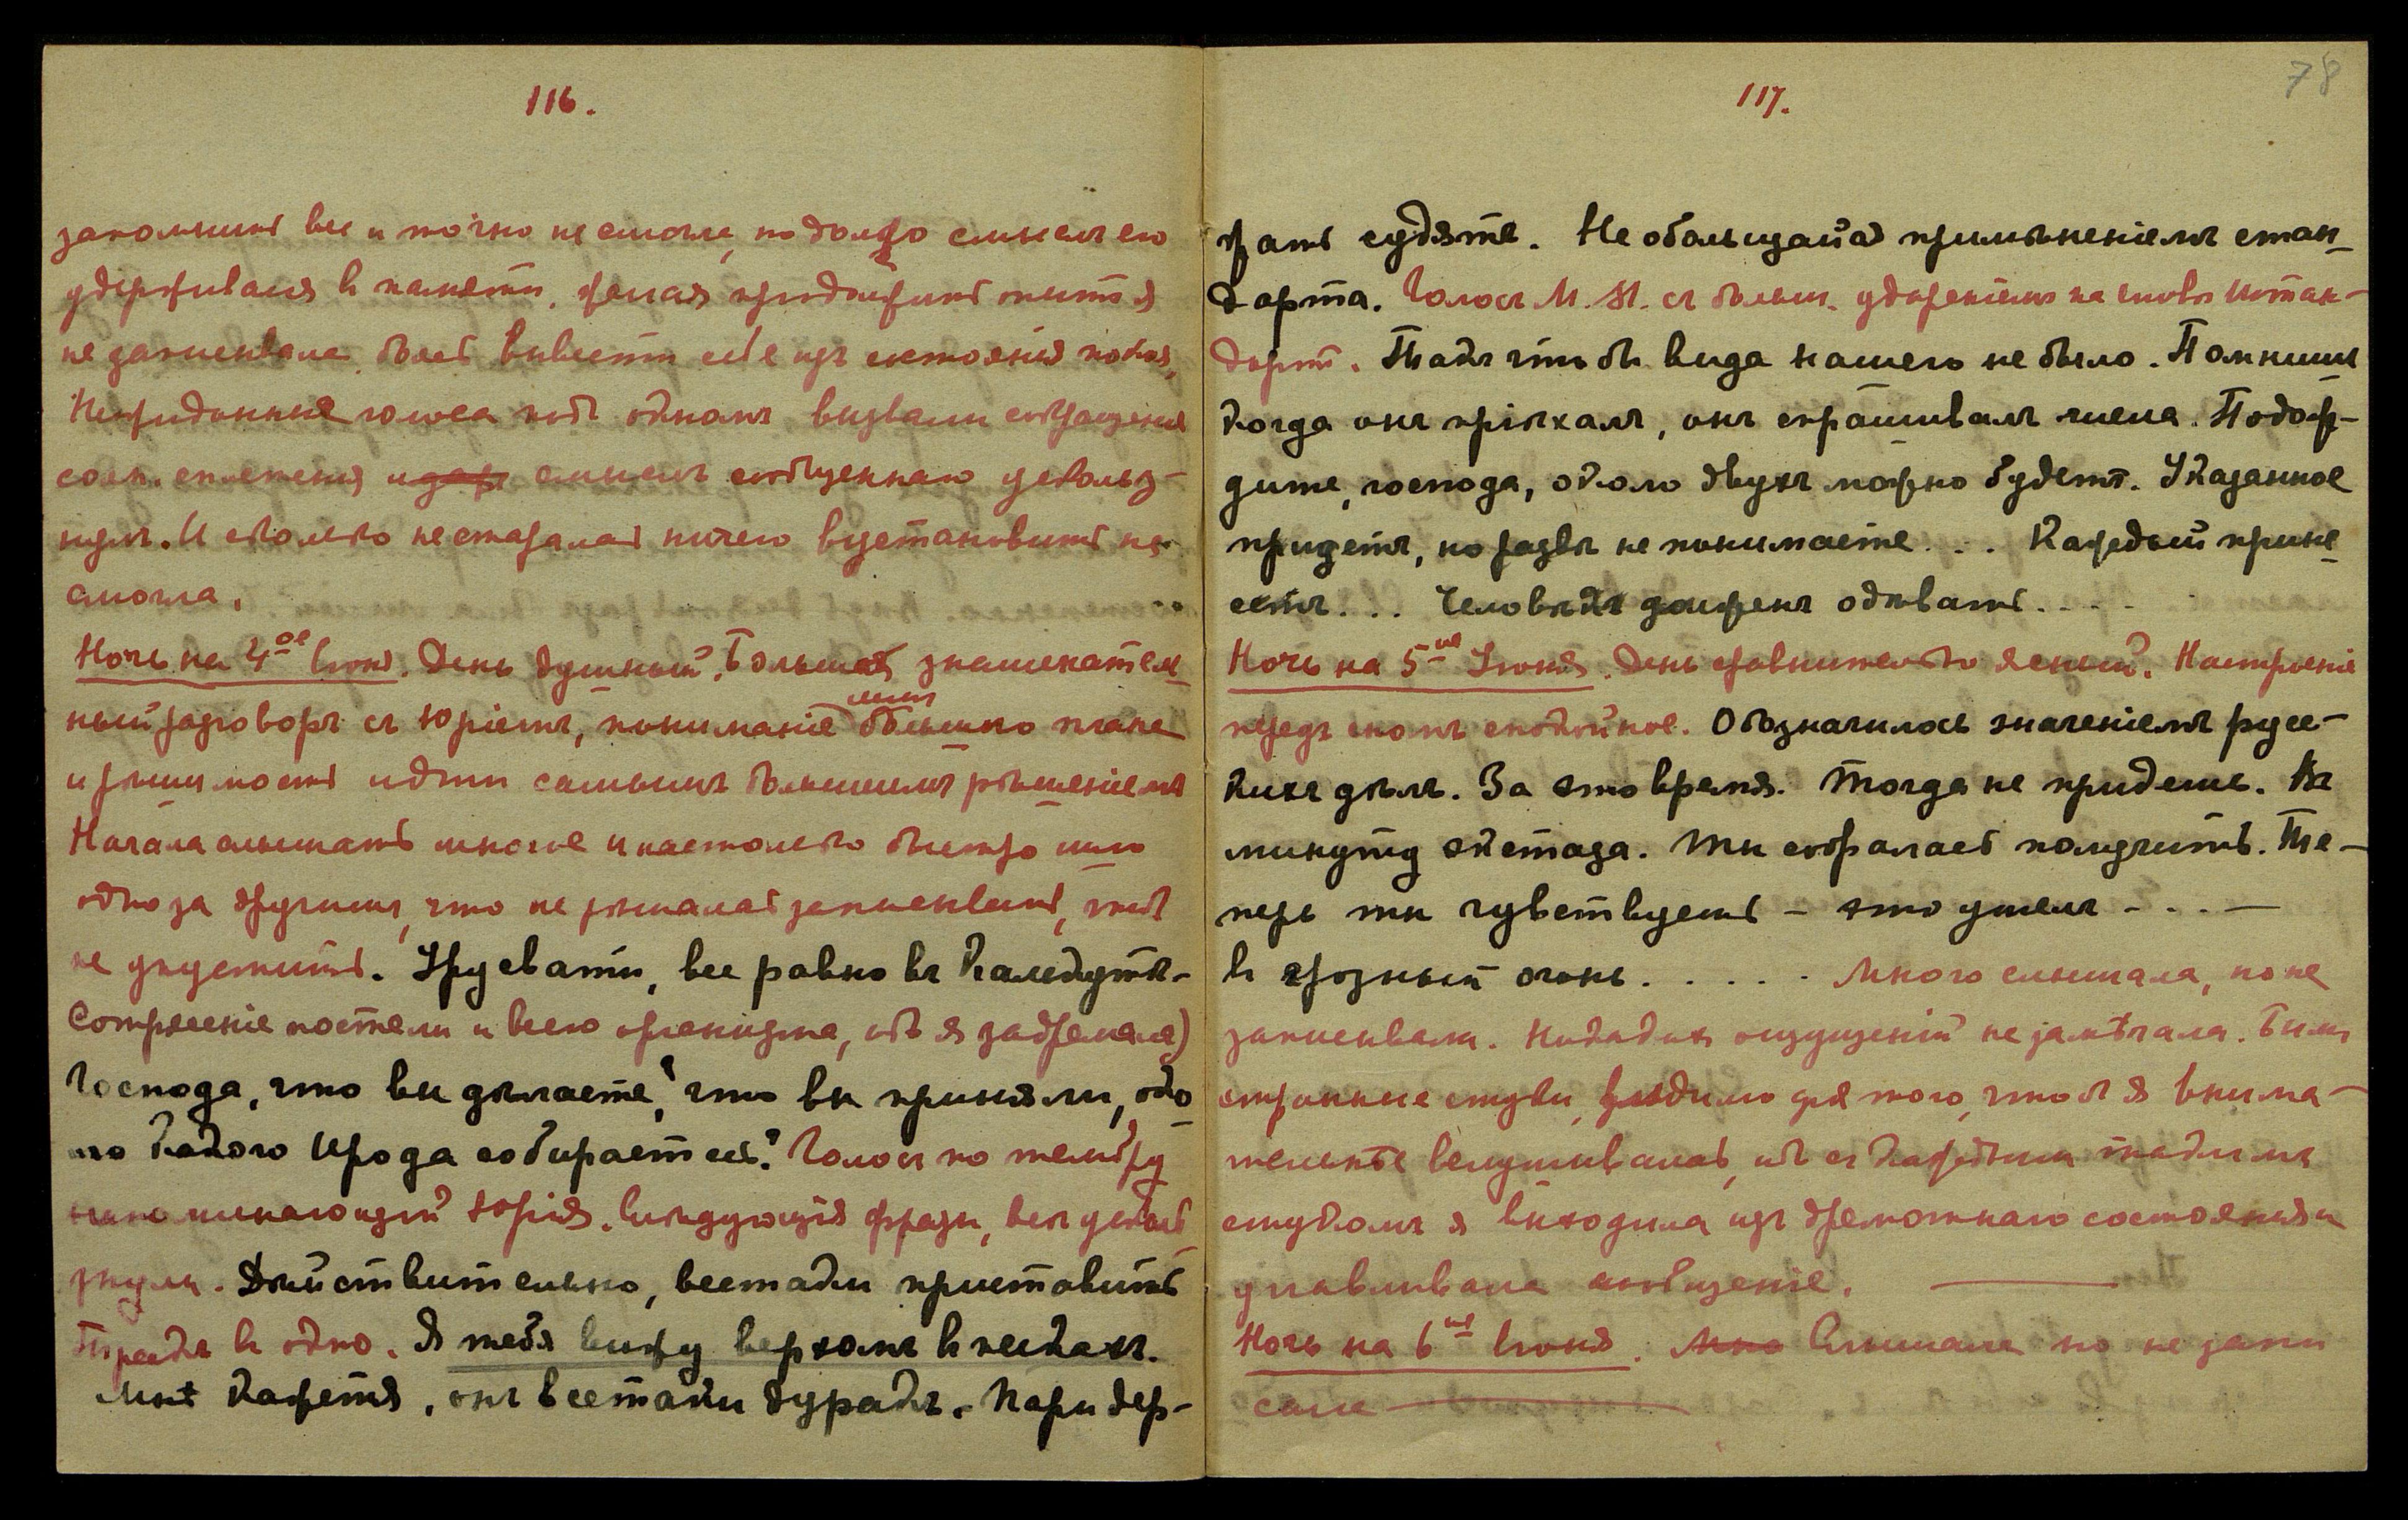 116.
запомнить все и точно не смогла, но долго смыслъ его
удерживался въ памяти, желая продолжить опытъ я
не записывала, боясь вывести себя изъ состоянія покоя,
Неожиданные голоса подъ окномъ вызвали сокращеніе
солн. сплетенія и смыслъ сообщеннаго усколь-
нулъ. И сколько не старалась ничего возстановить не
смогла.
Ночь на 4ое Іюня. День душный. Большой знаменатель-
ный разговоръ съ Юріемъ, пониманіе большого плана
и рѣшимость идти самымъ большимъ рѣшеніемъ
Начала слышать многое и настолько быстро шло
одно за другимъ, что не рѣшалась записывать, чтоб
не упустить. Урусвати, все равно въ Калькуттѣ-
Сотрясеніе постели и всего организма, ибо я задремала)
Господа, что вы дѣлаете, что вы приняли, око-
ло какого Ирода собираетесь? Голосъ по тембру
напоминающій Юрія. Слѣдующія фразы, все усколь
знули. Дѣйствительно, всетаки приставить
Предъ въ одно. Я тебя вижу верхомъ въ пескахъ.
Мнѣ кажется, онъ всетаки дуракъ. Пари дер-
117.
78
жать судяте. Не обольщайся примѣненіемъ стан-
дарта. Голосъ М. М. съ больш. удареніемъ на словѣ Штан-
дарт. Такъ что бы вида нашего не было. Помнишь
когда онъ пріѣхалъ, онъ спрашивалъ меня. Подож-
дите, господа, около двухъ можно будетъ. Указанное
придетъ, но развѣ не понимаете... Каждый прине-
сетъ... Человѣкъ долженъ одѣвать....
Ночь на 5ое Іюня. День сравнительно ясный. Настроеніе
передъ сномъ спокойное. Обозначилось значеніемъ рус-
кихъ дѣлъ. За это время. Тогда не придешь. Въ
минуту экстаза. Ты собралась получить. Те-
перь ты чувствуешь – это ушелъ - . . . —
въ грозный огонь. . . . . Много слышала, но не
записывала. Никакихъ ощущеній не замѣчала. Были
странные стуки, видимо для того, чтоб я внима-
тельнѣе вслушивалась, ибо съ каждымъ такимъ
стукомъ я выходила изъ дремотнаго состоянія и
улавливала сообщеніе.
Ночь на 6ое Іюня. Слышала но не запи
сала